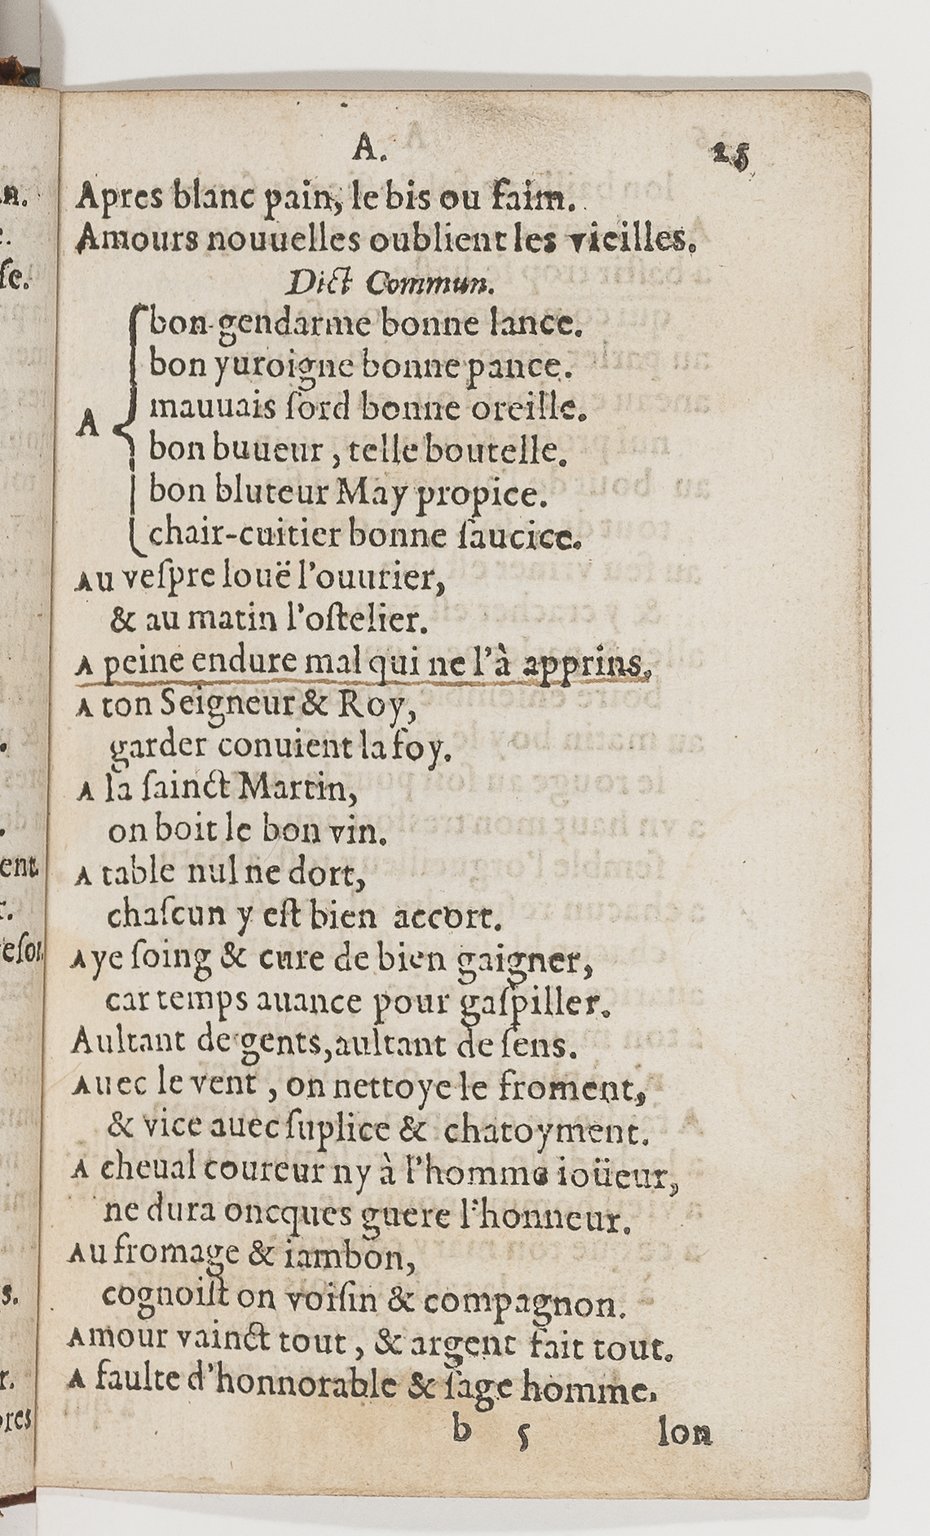 A. 25
Apres blanc pain, le bis ou faim.
Amours nouuelles oublient les vieilles.
Dict Commun.
bon gendarme bonne lance.
bon yuroigne bonne pance.
mauuais ſord bonne oreille.
A
bon buueur, telle boutelle.
bon bluteur May propice.
chair-cuitier bonne ſaucice.
Au veſpre louë l'ouurier,
& au matin l'oſtelier.
A peine endure mal qui ne l'à apprins.
A ton Seigneur & Roy,
garder conuient la foy.
A la ſainct Martin,
on boit le bon vin.
A table nul ne dort,
chaſcun y eſt bien accort.
Aye ſoing & cure de bien gaigner,
car temps auance pour gaſpiller.
Aultant de gents, aultant de ſens.
Auec le vent, on nettoye le froment,
& vice auec ſuplice & chatoyment.
A cheual coureur ny à l'homme ioüeur,
ne dura oncques guere l'honneur.
Au fromage & iambon,
cognoiſt on voiſin & compagnon.
Amour vainct tout, & argent fait tout.
A faulte d'honnorable & ſage homme.
b 5 lon